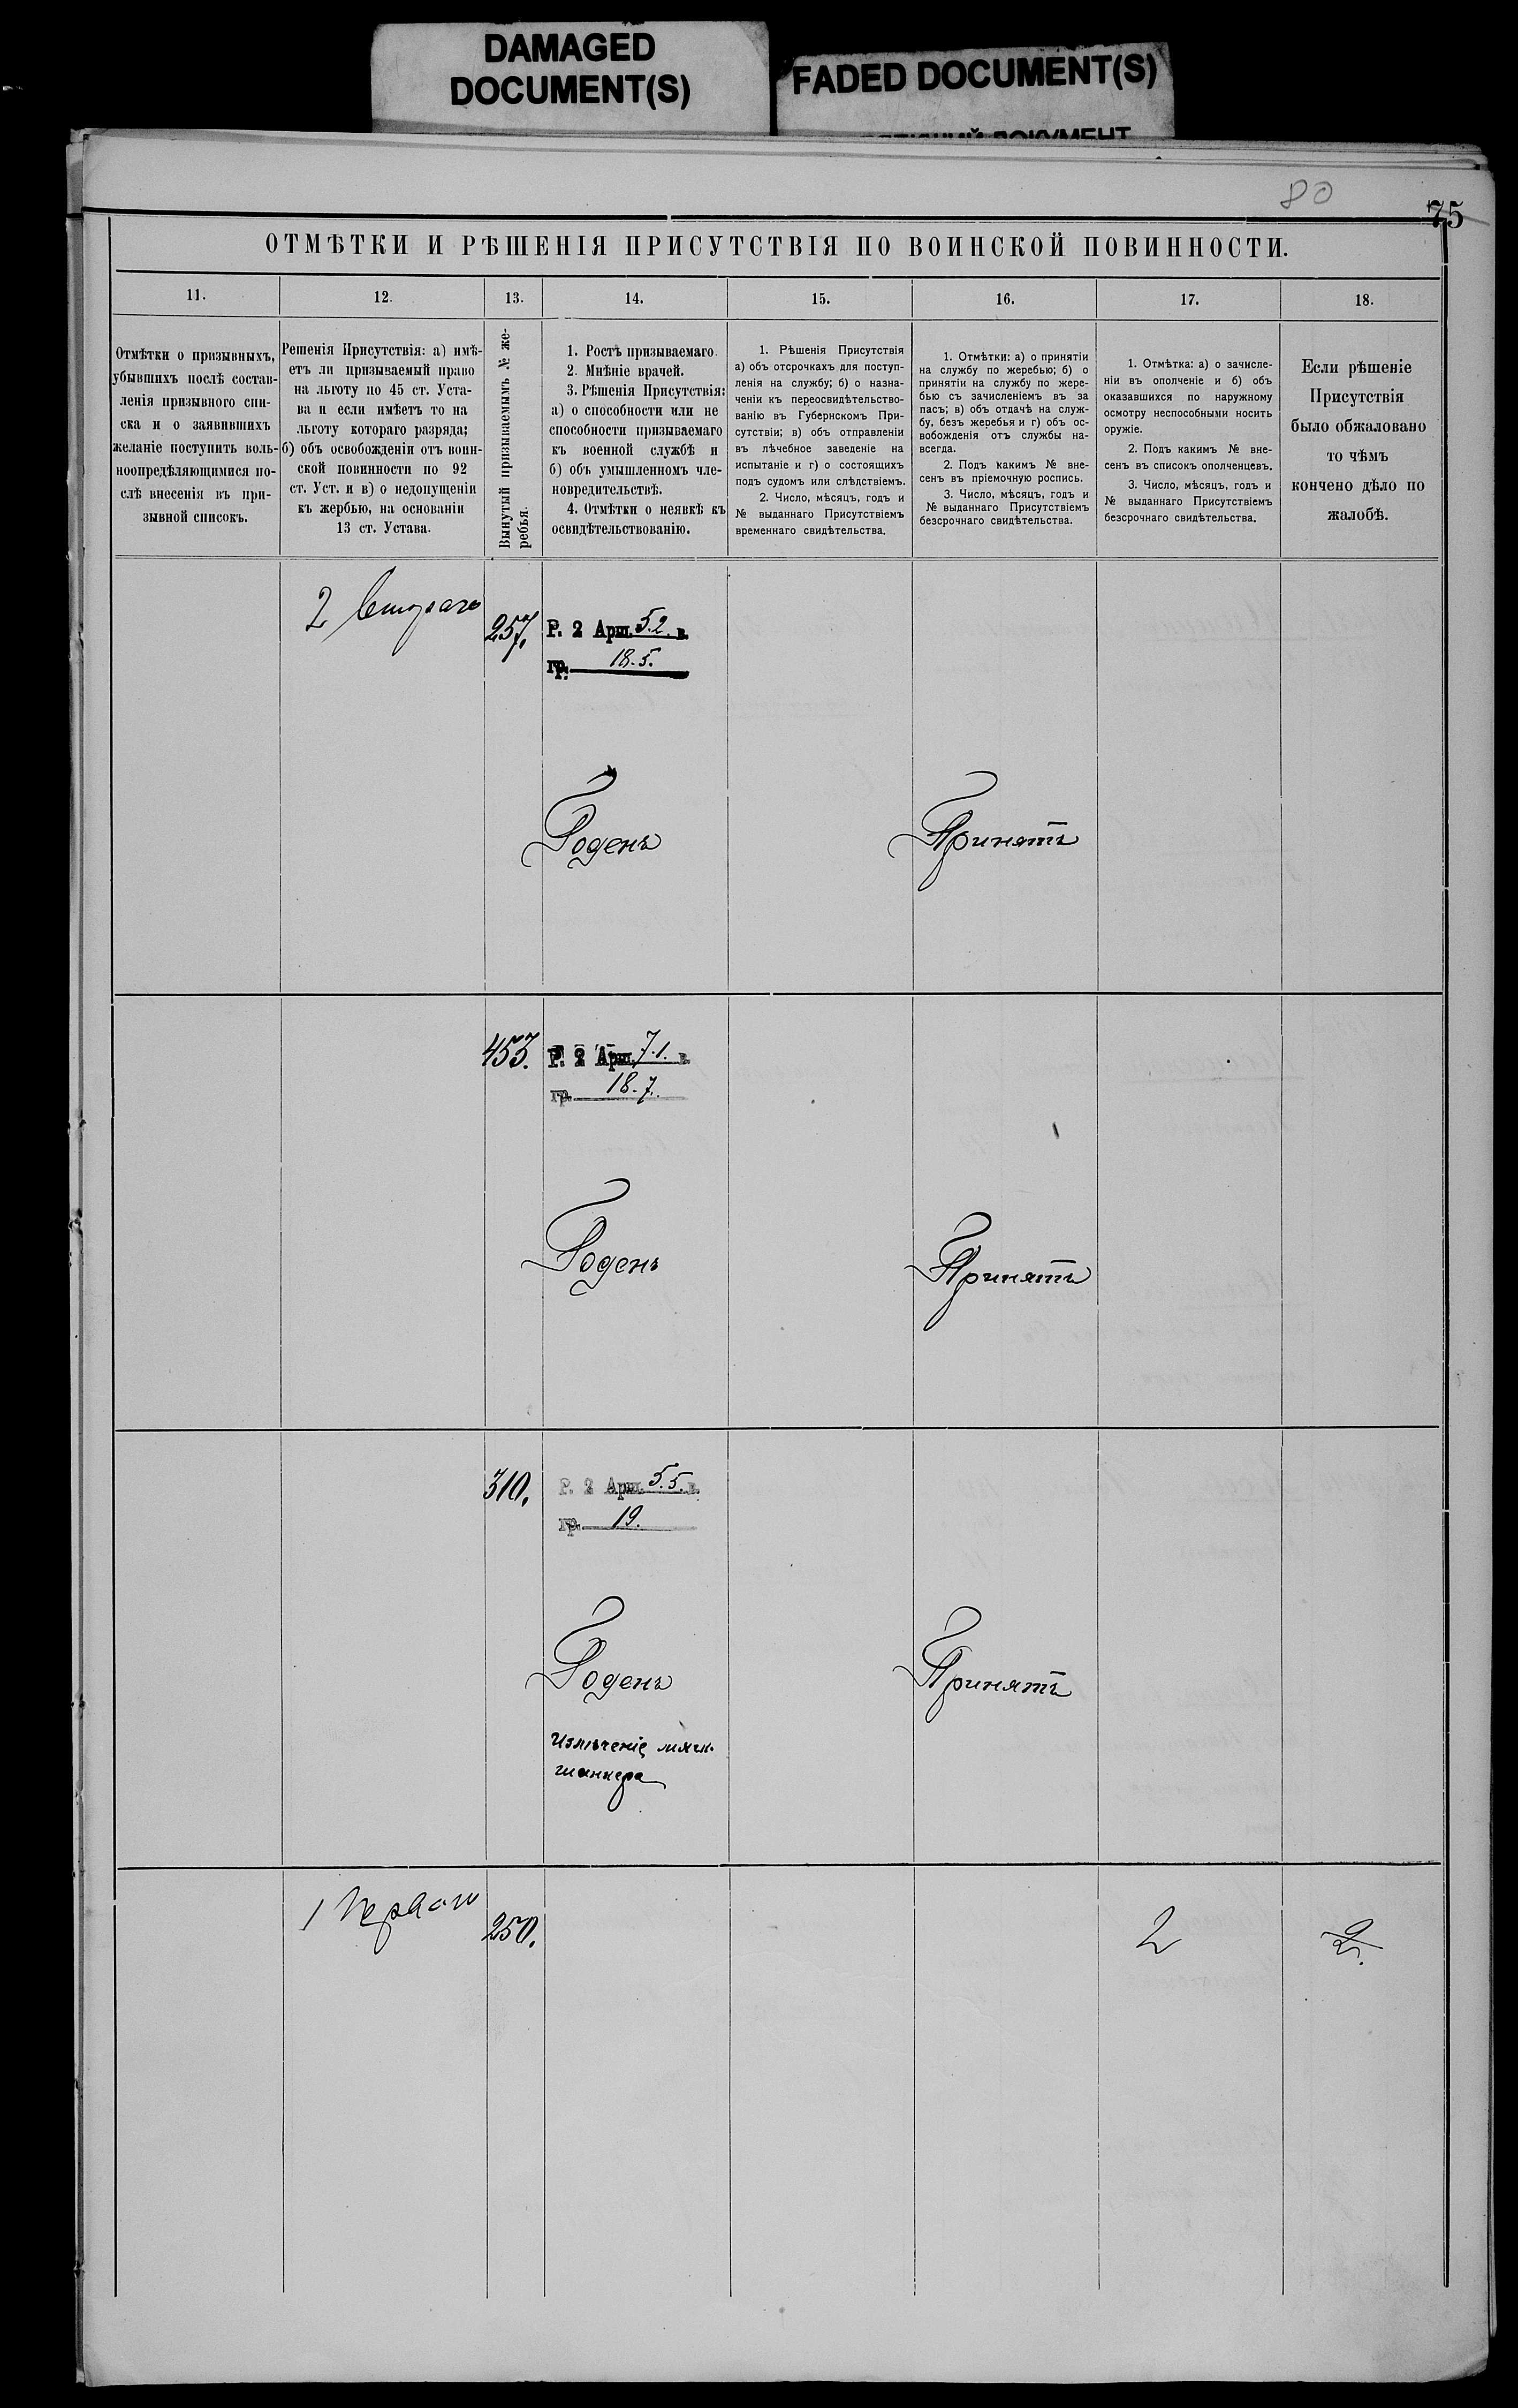 DAMAGED
DOCUMENT(S)
FADED DOCUMENT(S)
ДОКУМЕНТ
80
75
ОТМѢТКИ И РѢШЕНІЯ ПРИСУТСТВІЯ ПО ВОИНСКОЙ ПОВИННОСТИ.
11.
12.
13.
14.
15.
16.
17.
18.
Отмѣтки о призывныхъ,
убывшихъ послѣ состав-
ленія призывного спи-
ска и о заявившихъ
желаніе поступить воль-
ноопредѣляющимися по-
слѣ внесенія въ при-
зывной списокъ.
Решенія Присутствія: а) имѣ-
етъ ли призываемый право
на льготу по 45 ст. Уста-
ва и если имѣетъ то на
льготу котораго разряда;
б) объ освобожденіи отъ воин-
ской повинности по 92
ст. Уст. и в) о недопущеніи
къ жербью, на основаніи
13 ст. Устава.
Вынутый призываемымъ № же-
ребья.
1. Ростъ призываемаго.
2. Мнѣніе врачей.
3. Рѣшенія Присутствія:
а) о способности или не
способности призываемаго
къ военной службѣ и
б) объ умышленномъ чле-
новредительствѣ.
4. Отмѣтки о неявкѣ къ
освидѣтельствованію.
1. Рѣшенія Присутствія
а) объ отсрочкахъ для поступ-
ленія на службу; б) о назна-
ченіи къ переосвидѣтельство-
ванію въ Губернскомъ При-
сутствіи; в) объ отправленіи
въ лѣчебное заведеніе на
испытаніе и г) о состоящихъ
подъ судомъ или слѣдствіемъ.
2. Число, мѣсяцъ, годъ и
№ выданнаго Присутствіемъ
временнаго свидѣтельства.
1. Отмѣтки: а) о принятіи
на службу по жеребью; б) о
принятіи на службу по жере-
бью съ зачисленіемъ въ за
пасъ; в) объ отдачѣ на служ-
бу, безъ жеребья и г) объ ос-
вобожденія отъ службы на-
всегда.
2. Подъ какимъ № вне-
сенъ въ пріемочную роспись.
3. Число, мѣсяцъ, годъ и
№ выданнаго Присутствіемъ
безсрочнаго свидѣтельства.
1. Отмѣтка: а) о зачисле-
ніи въ ополченіе и б) объ
оказавшихся по наружному
осмотру неспособными носить
оружіе.
2. Подъ какимъ № вне-
сенъ въ списокъ ополченцевъ.
3. Число, мѣсяцъ, годъ и
№ выданнаго Присутствіемъ
безсрочнаго свидѣтельства.
Если рѣшеніе
Присутствія
было обжаловано
то чѣмъ
кончено дѣло по
жалобѣ.
2 Втораго
257.
Р. 2 Арш. 5.2. в.
гр. 18.5.
Годенъ
Принятъ
453.
Р. 2 Арш. 7.1. в.
гр. 18.7.
Годенъ
Принятъ
310.
Р. 2 Арш. 5.5. в.
гр. 19.
Годенъ
Принятъ
Излѣченіе мягк.
шанкера
1 Перваго
250.
2
2.